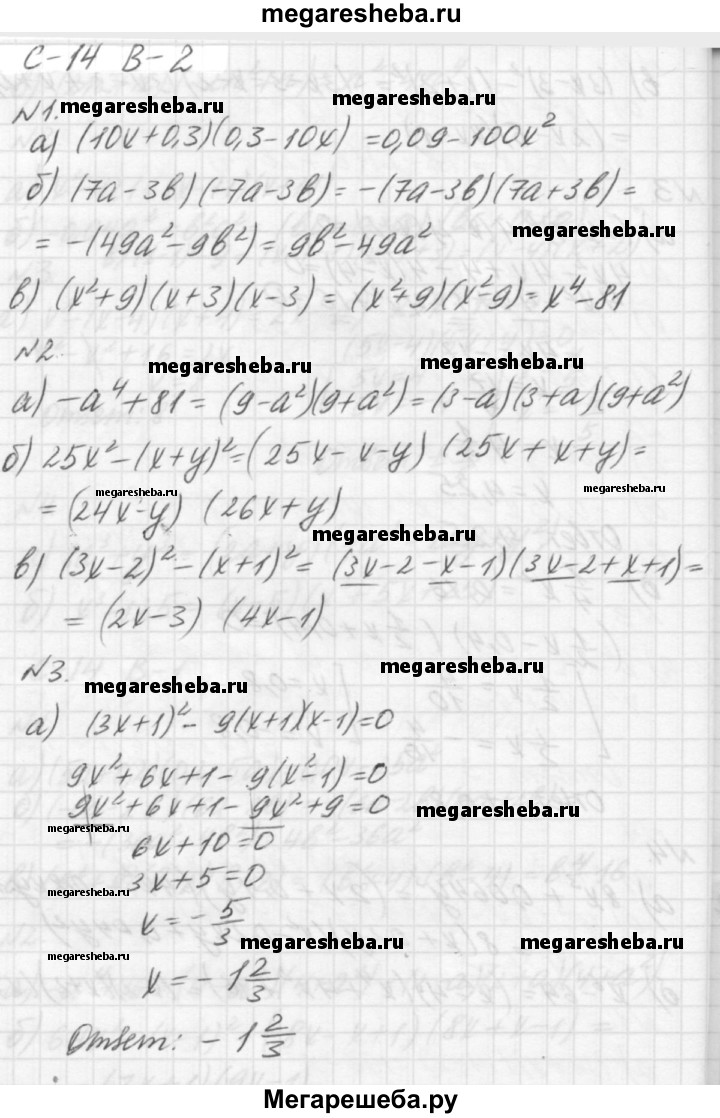 megaresheba.ru
С-14 В-2
№1.
megaresheba.ru megaresheba.ru
а) (10x+0,3)(0,3-10x) = 0,09-100x²
б) (7a-3b)(-7a-3b) = -(7a-3b)(7a+3b) =
megaresheba.ru
= -(49a²-9b²) = 9b²-49a²
в) (x²+9)(x+3)(x-3) = (x²+9)(x²-9) = x⁴-81
№2.
megaresheba.ru megaresheba.ru
а) -a⁴+81 = (9-a²)(9+a²) = (3-a)(3+a)(9+a²)
б) 25x²-(x+y)² = (25x-x-y) (25x+x+y) =
megaresheba.ru megaresheba.ru
= (24x-y) (26x+y)
megaresheba.ru
в) (3x-2)²-(x+1)² = (3x-2-x-1)(3x-2+x+1) =
= (2x-3) (4x-1)
№3.
megaresheba.ru
megaresheba.ru
а) (3x+1)² - 9(x+1)(x-1)=0
9x²+6x+1-9(x²-1)=0
9x²+6x+1-9x²+9=0
megaresheba.ru
megaresheba.ru
6x+10=0
3x+5=0
megaresheba.ru
x = -5/3
megaresheba.ru megaresheba.ru
megaresheba.ru
x = -1 2/3
Ответ: -1 2/3
Мегарешеба.ру